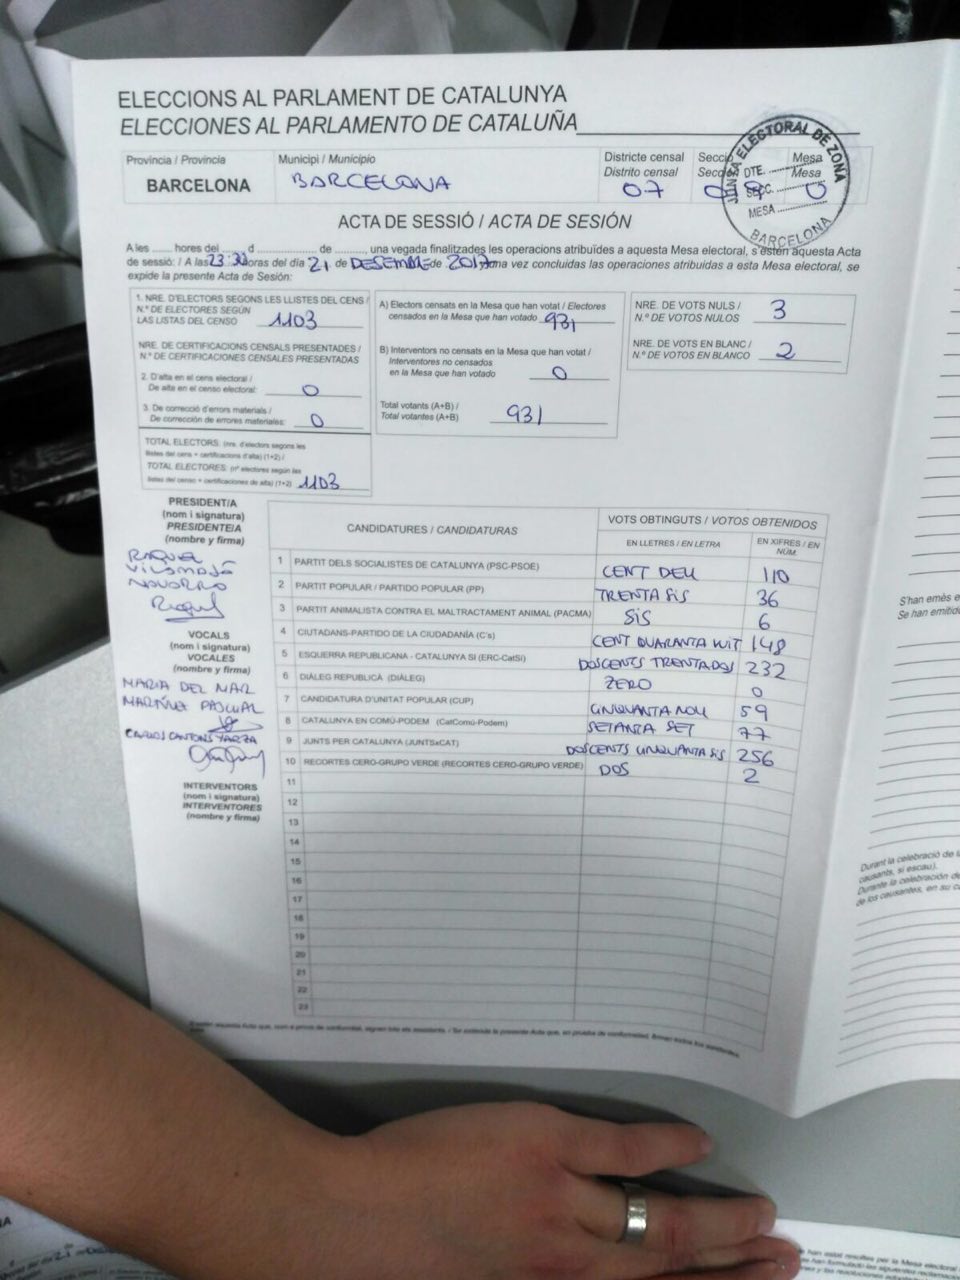 ELECCIONS AL PARLAMENT DE CATALUNYA
ELECCIONES AL PARLAMENTO DE CATALUÑA
Provincia / Provincia
BARCELONA
Municipi / Municipio
BARCELONA
Districte censal
Distrito censal
07
Secció
Mesa
Mesa
JUNTA ELECTORAL DE ZONA
DTE.
SECC.
MESA
BARCELONA
ACTA DE SESSIÓ / ACTA DE SESIÓN
A les ........ hores del ...... d .................... de .........., una vegada finalitzades les operacions atribuïdes a aquesta Mesa electoral, s'estén aquesta Acta
de sessió: / A las 23:30 horas del día 21 de DESEMBRE de 2017 una vez concluidas las operaciones atribuidas a esta Mesa electoral, se
expide la presente Acta de Sesión:
1. NRE. D'ELECTORS SEGONS LES LLISTES DEL CENS /
N.º DE ELECTORES SEGÚN
LAS LISTAS DEL CENSO 1103
NRE. DE CERTIFICACIONS CENSALS PRESENTADES /
N.º DE CERTIFICACIONES CENSALES PRESENTADAS
2. D'alta en el cens electoral /
De alta en el censo electoral: 0
3. De correcció d'errors materials /
De corrección de errores materiales: 0
TOTAL ELECTORS: (nre. d'electors segons les
llistes del cens + certificacions d'alta) (1+2) /
TOTAL ELECTORES: (nº electores según las
listas del censo + certificaciones de alta) (1+2) 1103
A) Electors censats en la Mesa que han votat / Electores
censados en la Mesa que han votado 931
B) Interventors no censats en la Mesa que han votat /
Interventores no censados
en la Mesa que han votado 0
Total votants (A+B) /
Total votantes (A+B) 931
NRE. DE VOTS NULS /
N.º DE VOTOS NULOS 3
NRE. DE VOTS EN BLANC /
N.º DE VOTOS EN BLANCO 2
PRESIDENT/A
(nom i signatura)
PRESIDENTE/A
(nombre y firma)
RAQUEL
NAVARRO
Raquel
VOCALS
(nom i signatura)
VOCALES
(nombre y firma)
MARIA DEL MAR
PASCUAL
CARLOS CANTONS YARZA
INTERVENTORS
(nom i signatura)
INTERVENTORES
(nombre y firma)
CANDIDATURES / CANDIDATURAS
VOTS OBTINGUTS / VOTOS OBTENIDOS
EN LLETRES / EN LETRA
EN XIFRES / EN NÚM.
1 PARTIT DELS SOCIALISTES DE CATALUNYA (PSC-PSOE) CENT DEU 110
2 PARTIT POPULAR / PARTIDO POPULAR (PP) TRENTA SIS 36
3 PARTIT ANIMALISTA CONTRA EL MALTRACTAMENT ANIMAL (PACMA) SIS 6
4 CIUTADANS-PARTIDO DE LA CIUDADANÍA (C's) CENT QUARANTA VUIT 148
5 ESQUERRA REPUBLICANA - CATALUNYA SÍ (ERC-CatSí) DOSCENTS TRENTA DOS 232
6 DIÀLEG REPUBLICÀ (DIÀLEG) ZERO 0
7 CANDIDATURA D'UNITAT POPULAR (CUP) CINQUANTA NOU 59
8 CATALUNYA EN COMÚ-PODEM (CatComú-Podem) SETANTA SET 77
9 JUNTS PER CATALUNYA (JUNTSxCAT) DOSCENTS CINQUANTA SIS 256
10 RECORTES CERO-GRUPO VERDE (RECORTES CERO-GRUPO VERDE) DOS 2
11
12
13
14
15
16
17
18
19
20
21
22
23
S'han emès e
Se han emitido
Durant la celebració de la
causants, si escau).
Durante la celebración de
de los causantes, en su c